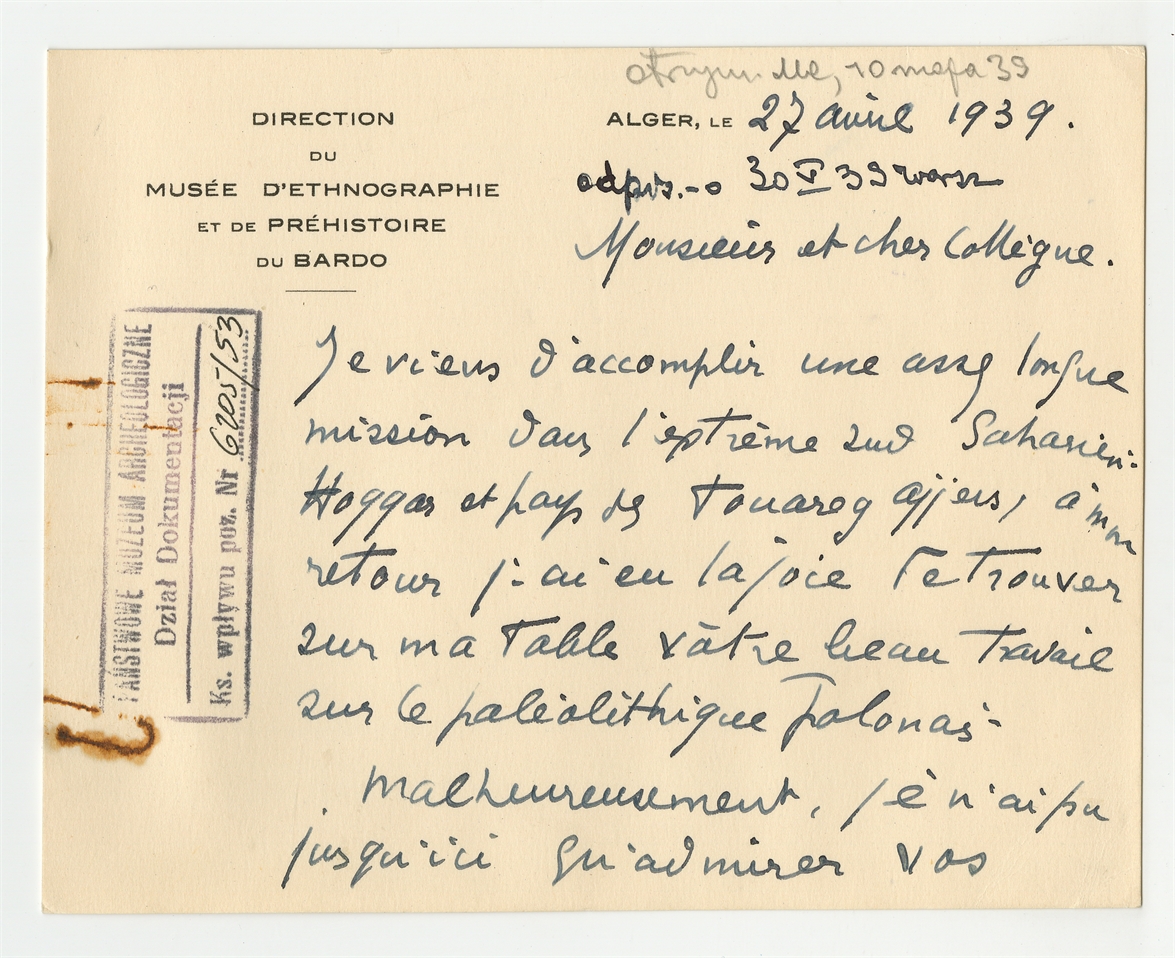 10 maja 39
DIRECTION
DU
MUSÉE D'ETHNOGRAPHIE
ET DE PRÉHISTOIRE
DU BARDO
ALGER, LE 27 avril 1939.
odpis.-o 30 V 39 warsz
Monsieur et cher Collègue.
Je viens d'accomplir une assez longue
mission dans l'extrème sud Saharien:
Hoggar et pays des Touareg ajjers, à mon
retour j'ai eu la joie de trouver
sur ma table vôtre beau travail
sur le paléolithique polonais-
malheureusement, je n'ai pu
jusqu'ici qu'admirer vos
PAŃSTWOWE MUZEUM ARCHEOLOGICZNE
Dział Dokumentacji
Ks. wpływu poz. Nr 6205/53